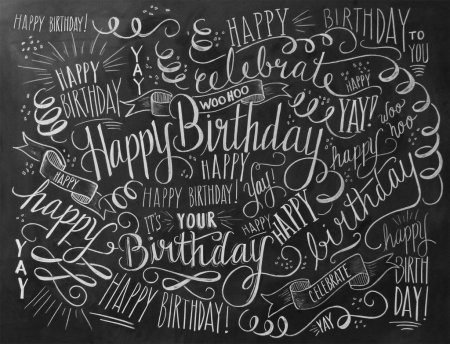 HAPPY BIRTHDAY!
HAPPY BIRTHDAY
TO YOU
YAY
celebrate
HAPPY BIRTHDAY
WOO HOO
HAPPY
YAY!
woo hoo
Happy Birthday
happy birthday
HAPPY
HAPPY
HAPPY BIRTHDAY!
Yay!
IT'S YOUR Birthday
HAPPY
HAPPY
happy BIRTHDAY!
YAY
CELEBRATE
HAPPY BIRTHDAY!
YAY